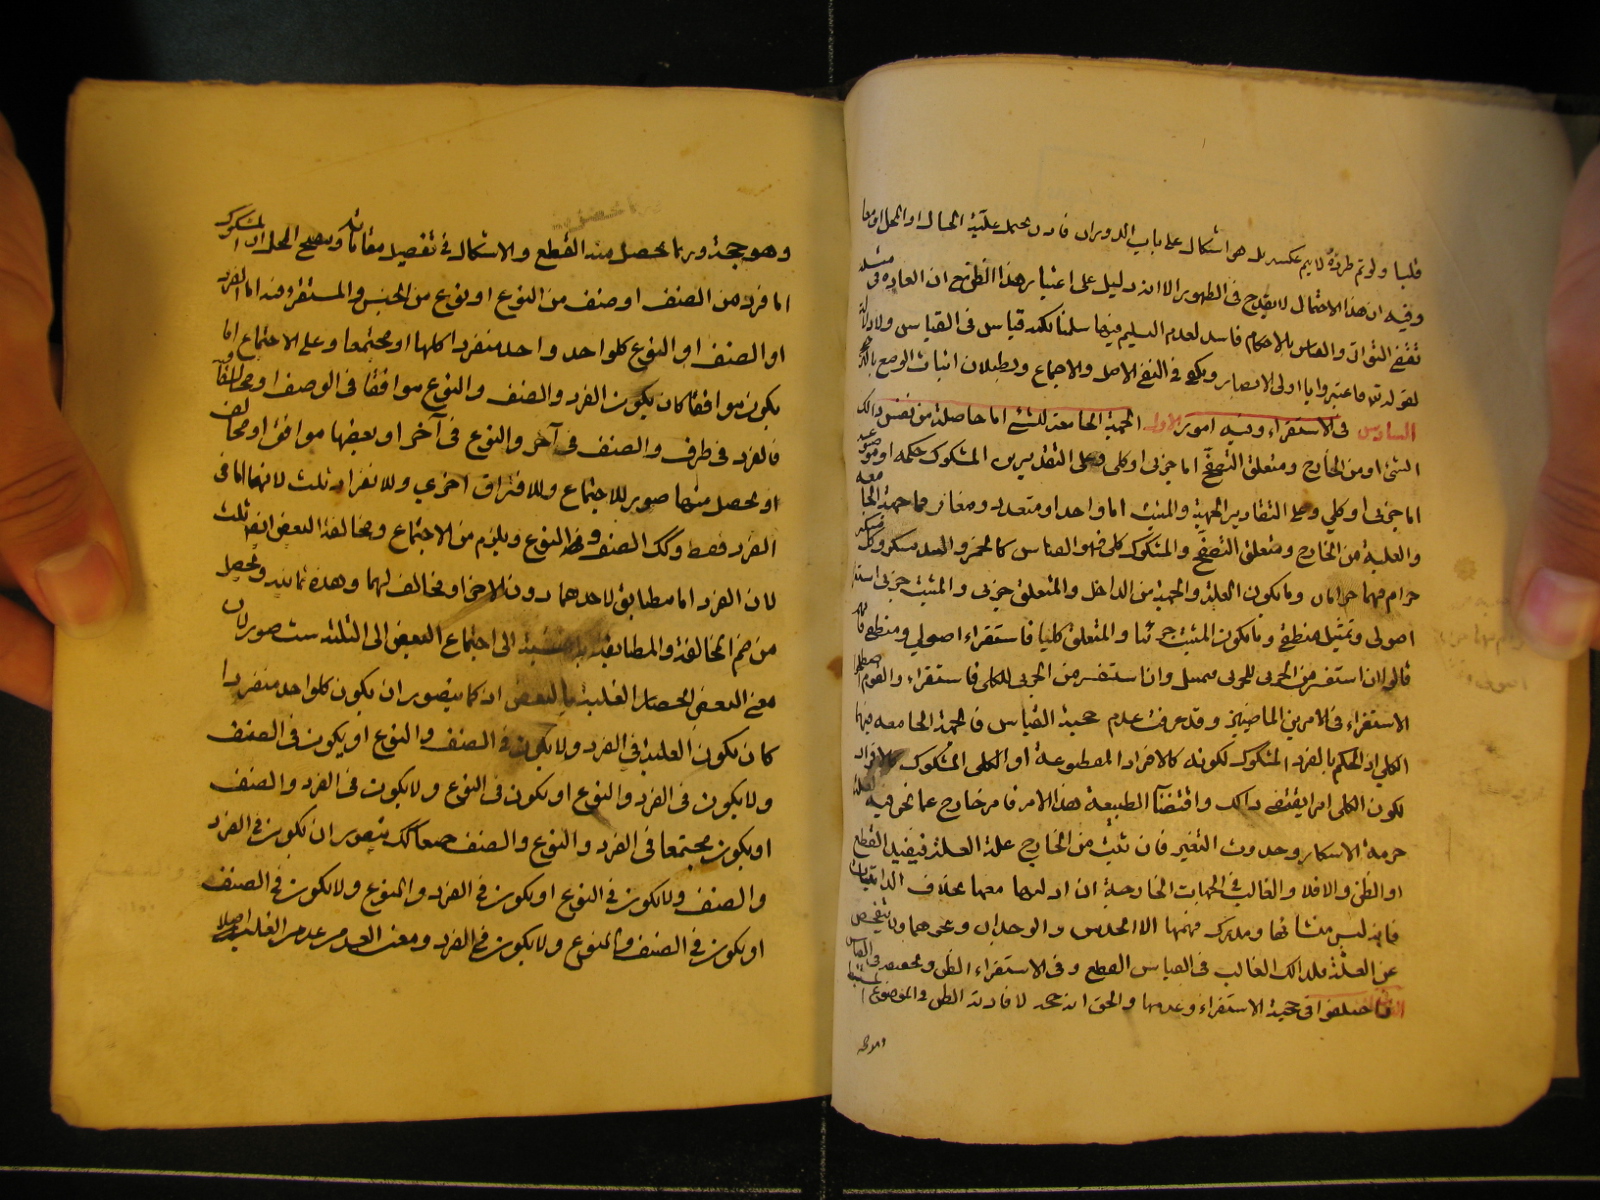 قلبا ولو تم طرده لا يتم عكسه بل هى اشكال على باب الدوران فان يحتمل علية الحال او المحل او معا
وفيه ان هذا الاحتمال لا يقدح فى الظهور الا انه دليل على اعتبار هذا الظن مع ان العادة فى مثله
تقتضى التواتر والقياس بالاحكام فاسد لعدم التسليم فيها سلمنا لكنه قياس فى القياس ولا دلالة
لقوله تعالى فاعتبروا يا اولى الابصار ويكفى فى النفى الاصل والاجماع وبطلان اثبات الوضع
السادس فى الاستقراء وفيه امور الاول الجهة الجامعة للشئ اما حاصلة من نفس ذلك
الشئ او من الخارج ومتعلق التصفح اما جزئى او كلى وعلى التقديرين المشكوك حكمه او موضوعه
اما جزئى او كلي وعلى التقادير الجهة والمثبت اما واحد او متعدد ومغاير فما جهة الجامعة
والعلية من الخارج ومتعلق التصفح والمشكوك كلى فهو القياس كالخمر والنبيذ مسكر وكل مسكر
حرام فهما حرامان وما يكون العلة والجهة من الداخل والمتعلق جزئى والمثبت جزئى استقراء
اصولى وتمثيل منطقى وما يكون المثبت جزئيا والمتعلق كليا فاستقراء اصولى ومنطقى
قالوا ان استفسر من الجزئى للجزئى تمثيل وان استفسر من الجزئى للكلى فاستقراء والقوم اصطلحوا
الاستقراء فى الامرين الماضيين وقد عرفت عدم حجية القياس فالجهة الجامعة فيها
الكلي اذ الحكم بالفرد المشكوك لكونه كالافراد المقطوعة او الكلى المشكوك كالافراد
لكون الكلى امرا يقتضى ذلك واقتضاء الطبيعة هذا الامر فامر خارج عما نحن فيه
حرمة الاسكار وحدوث التغير فان ثبت من الخارج علة العلة فيفيد القطع
او الظن والافلا والغالب فى الجهات الخارجة ان ادلتها معها بخلاف الذاتيات
فانه ليس منشائها ومدرك فهمها الا الحدس والوجدان ونحوهما
عن العلة فلذلك الغالب فى القياس القطع وفى الاستقراء الظن
اختلفوا فى حجية الاستقراء وعدمها والحق انه حجة لافادته الظن فى الموضوع
وهو حجة وربما يحصل منه القطع والاشكال فى تفصيل مقاماته وتنقيح المحل ان المشكوك
اما فرد من الصنف او صنف من النوع او نوع من الجنس والمستقرء منه اما الفرد
او الصنف او النوع كلواحد واحد منفردا كلها او مجتمعا وعلى الاجتماع اما
يكون موافقا كان يكون الفرد والصنف والنوع موافقا فى الوصف او مخالفا
فالفرد فى طرف والصنف فى آخر والنوع فى آخر او بعضها موافق او مخالف
او يحصل منها صور للاجتماع وللافتراق اخرى وللانفراد ثلث لانهما اما فى
الفرد فقط وكك الصنف وفى النوع ويلزم من الاجتماع ومخالفة البعض ايضا ثلث
لان الفرد اما مطابق لاحدهما دون الاخر او مخالف لهما وهذه ثمانية ويحصل
من ضم المخالفة والمطابقة بالنسبة الى اجتماع البعض الى الثلثة ست صور لان
معنى البعض انحصار الغلبة بالبعض اذ كما يتصور ان يكون كلواحد منفردا
كان يكون الغلبة فى الفرد ولا يكون فى الصنف والنوع او يكون فى الصنف
ولا يكون فى الفرد والنوع او يكون فى النوع ولا يكون فى الفرد والصنف
او يكون مجتمعا فى الفرد والنوع والصنف جمعا كك يتصور ان يكون فى الفرد
والصنف ولا يكون فى النوع او يكون فى الفرد والنوع ولا يكون فى الصنف
او يكون فى الصنف والنوع ولا يكون فى الفرد ومعنى العدم عدم الغلبة اصلا